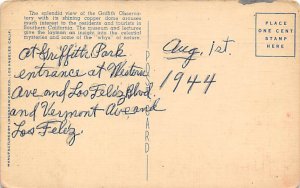 The splendid view of the Griffith Observa-
tory with its shining copper dome arouses
much interest to the residents and tourists in
Southern California. The museum and lectures
give the layman an insight into the celestial
mysteries and some of the "whys" of nature.
At Griffith Park
entrance at Western
Ave and Los Feliz Blvd
and Vermont Ave and
Los Feliz
POST CARD
Aug. 1st.
1944
PLACE
ONE CENT
STAMP
HERE